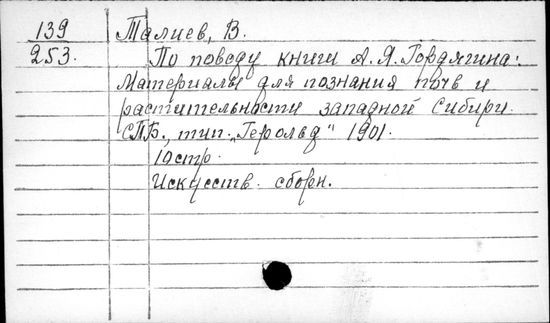 139 Талиев, В.
253. По поводу книги А. Я. Гордягина:
Материалы для познания почв и
растительности западной Сибири.
СПБ., тип. „Герольд" 1901.
10 стр.
Искусств. сборн.